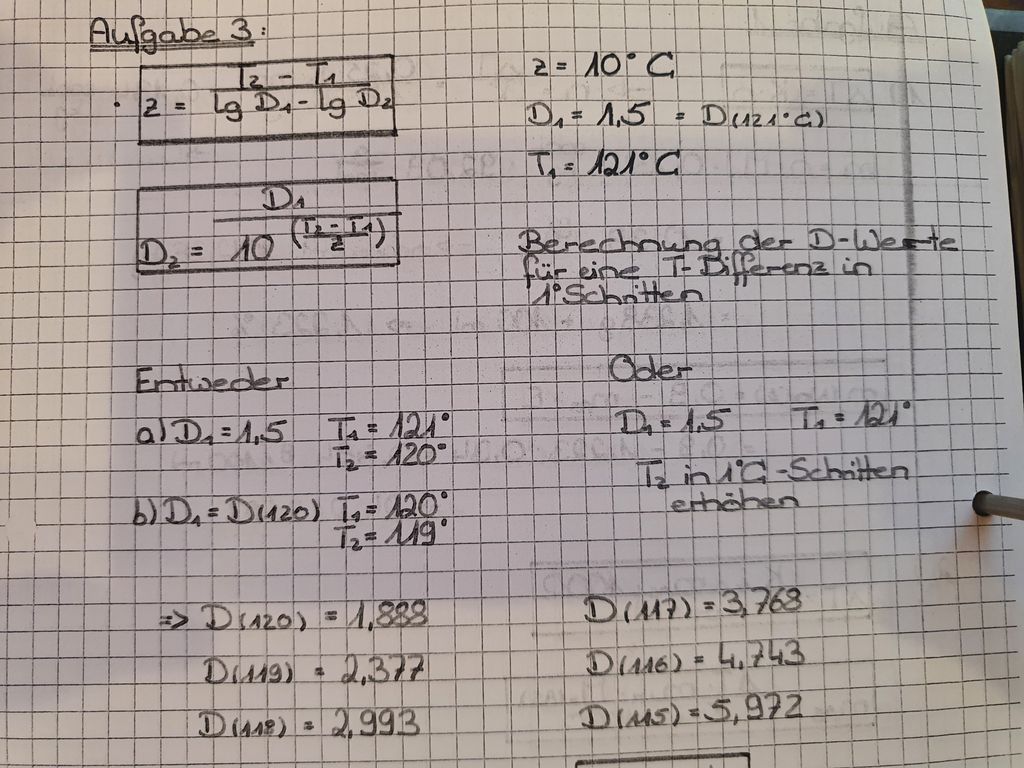 Aufgabe 3:
z = T₂ - T₁ / lg D₁ - lg D₂
z = 10°C
D₁ = 1,5 = D(121°C)
T₁ = 121°C
D₂ = D₁ / 10^((T₂ - T₁)/z)
Berechnung der D-Werte
für eine T-Differenz in
1° Schritten
Entweder
a) D₁ = 1,5 T₁ = 121°
T₂ = 120°
b) D₁ = D(120) T₁ = 120°
T₂ = 119°
Oder
D₁ = 1,5 T₁ = 121°
T₂ in 1°C - Schritten
erhöhen
=> D(120) = 1,888
D(119) = 2,377
D(118) = 2,993
D(117) = 3,768
D(116) = 4,743
D(115) = 5,972